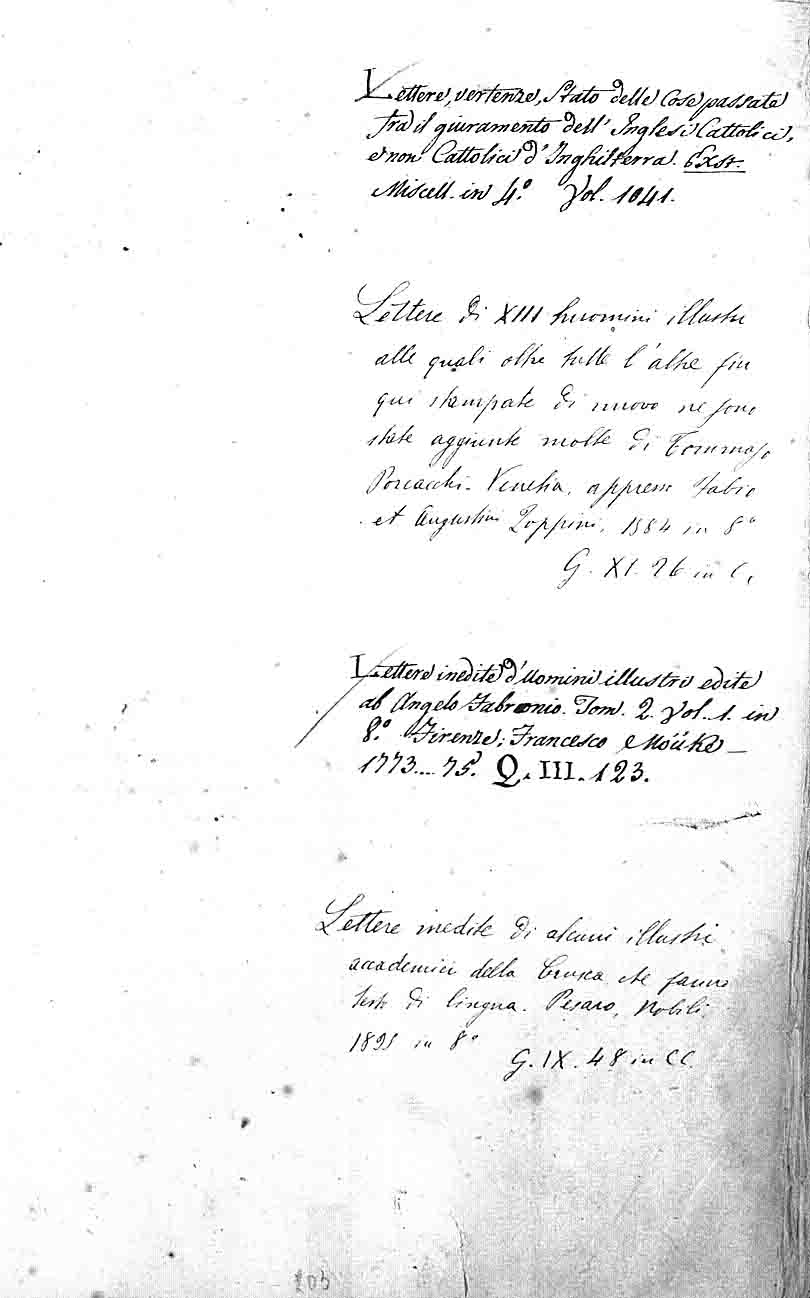 Lettere, vertenze, Stato delle Cose passate
fra il giuramento dell' Inglesi Cattolici,
e non Cattolici d'Inghilterra. Exst.
Miscell. in 4.° Vol. 1041.
Lettere di XIII huomini illustri
alle quali oltre tutte l'altre fin
qui stampate di nuovo ne sono
state aggiunte molte di Tommaso
Porcacchi. Venetia, appresso Fabio
et Augustin Zoppini, 1584 in 8°
G. XI. 26 in C.
Lettere inedite d'Uomini illustri edite
ab Angelo Fabronio. Tom. 2. Vol. 1. in
8.° Firenze; Francesco Moüke
1773...75. Q. III. 123.
Lettere inedite di alcuni illustri
accademici della Crusca che fanno
testo di lingua. Pesaro, Nobili,
in 8°
G. IX. 48 in CC.
205